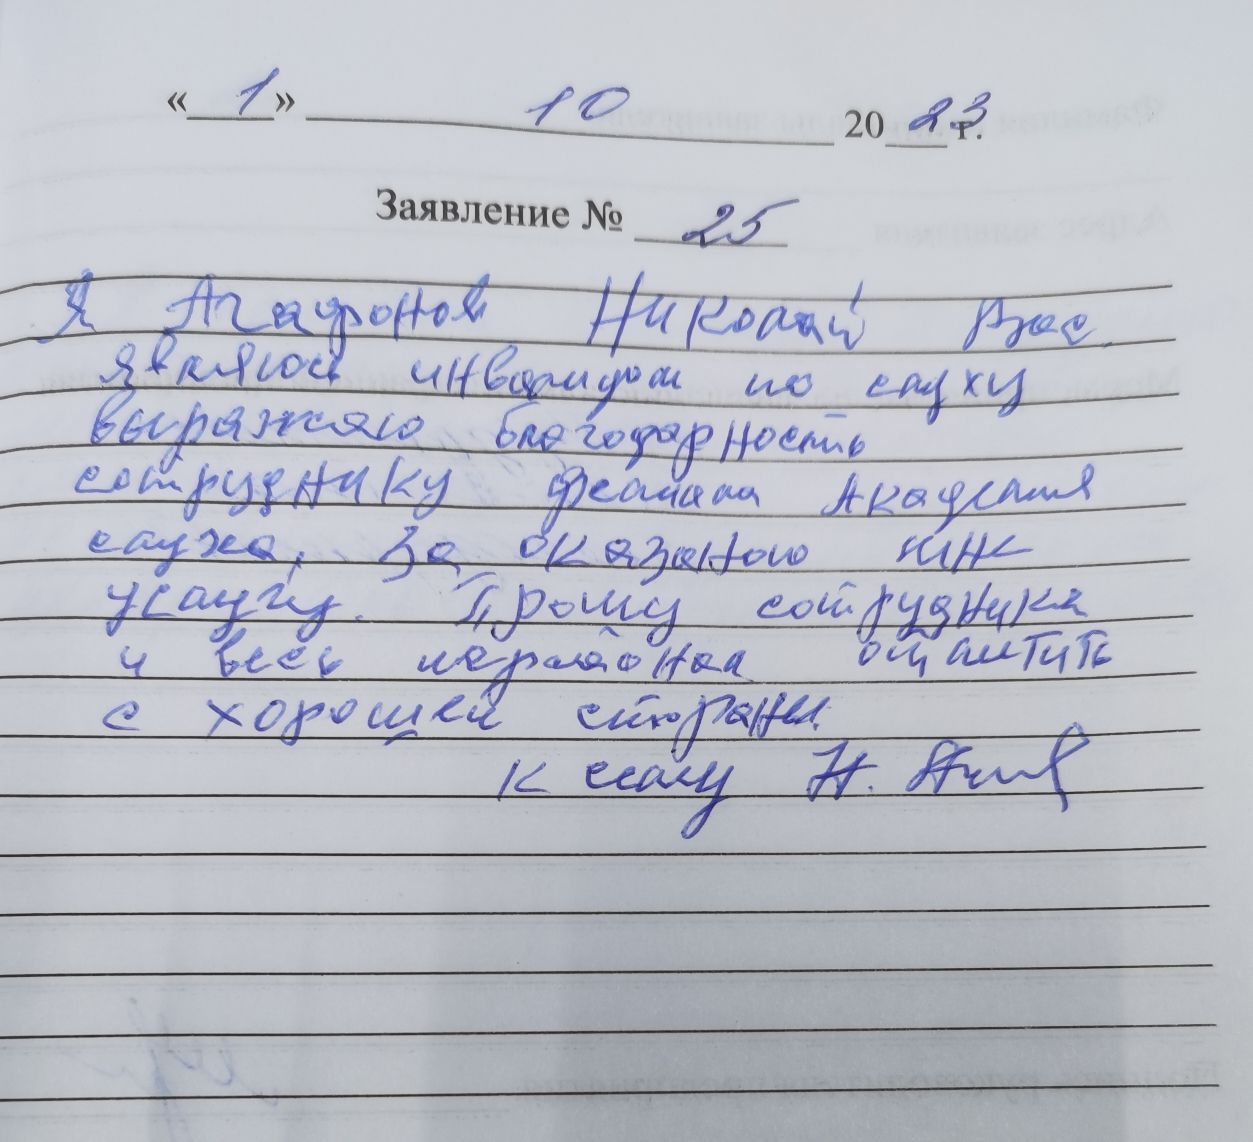 «1» 10 2023 г.
Заявление № 25
Я Агафонов Николай Вас.
являюсь инвалидом по слуху
выражаю благодарность
сотруднику филиала Академия
слуха, за оказаною мне
услугу. Прошу сотрудника
и весь персонал отметить
с хорошей стороны.
К сему Н.